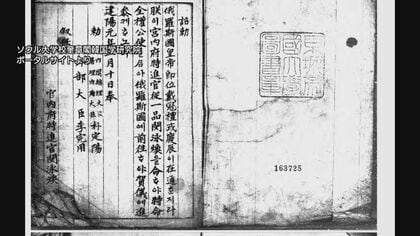 ソウル大学校奎章閣韓国学研究院
ポータルサイトより
詔勅
俄羅斯國皇帝即位戴冠禮式慶辰이在邇
朕이宮內府特進官從一品閔泳煥을命
特命
全權公使
俄羅斯國에前往
賀儀에進
建陽元年
月十日奉
勅
朴定陽
部大臣李完用
叙任
宮內府特進官閔泳煥
京城帝
國大學
圖書章
163725